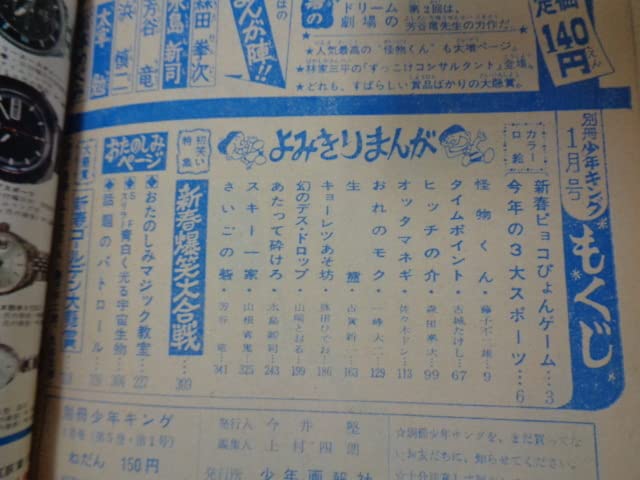 ドリーム劇場の第2回は、
芳谷竜先生の力作だ。
★人気最高の“怪物くん”も大増ページ。
★林家三平の“ずっこけコンサルタント”登場。
★どれも、すばらしい賞品ばかりの大懸賞。
定価
140円
まんが陣!!
森田拳次
水島新司
芳谷竜
浜慎二
別冊少年キング
1月号
もくじ
カラー口絵
新春ピョコぴょんゲーム…3
今年の3大スポーツ…6
よみきりまんが
怪物くん…藤子不二雄…9
タイムポイント…古城たけし…67
ヒッチの介…森田拳次…99
オッタマネギ…佐々木ドン…113
おれのモク…一峰大二…129
生霊…古賀新一…163
キョーレツあそ坊…勝田ひでお…186
幻のデス・ドロップ…山岡とおる…199
あたって砕けろ…水島新司…243
スキー一家…山根青鬼…325
さいごの砦…芳谷竜…341
初笑い特集
新春爆笑大合戦…309
おたのしみページ
◆おたのしみマジック教室…227
◆SFスリラー 青白く光る宇宙生物…304
◆話題のパトロール
新春ゴールデン大懸賞
別冊少年キング
1月号(第5巻・第1号)
ねだん 150円
発行人 今井堅
編集人 上村二四朗
発行所 少年画報社
★別冊少年キングを、まだ買ってな
いお友だちに、知らせてください。